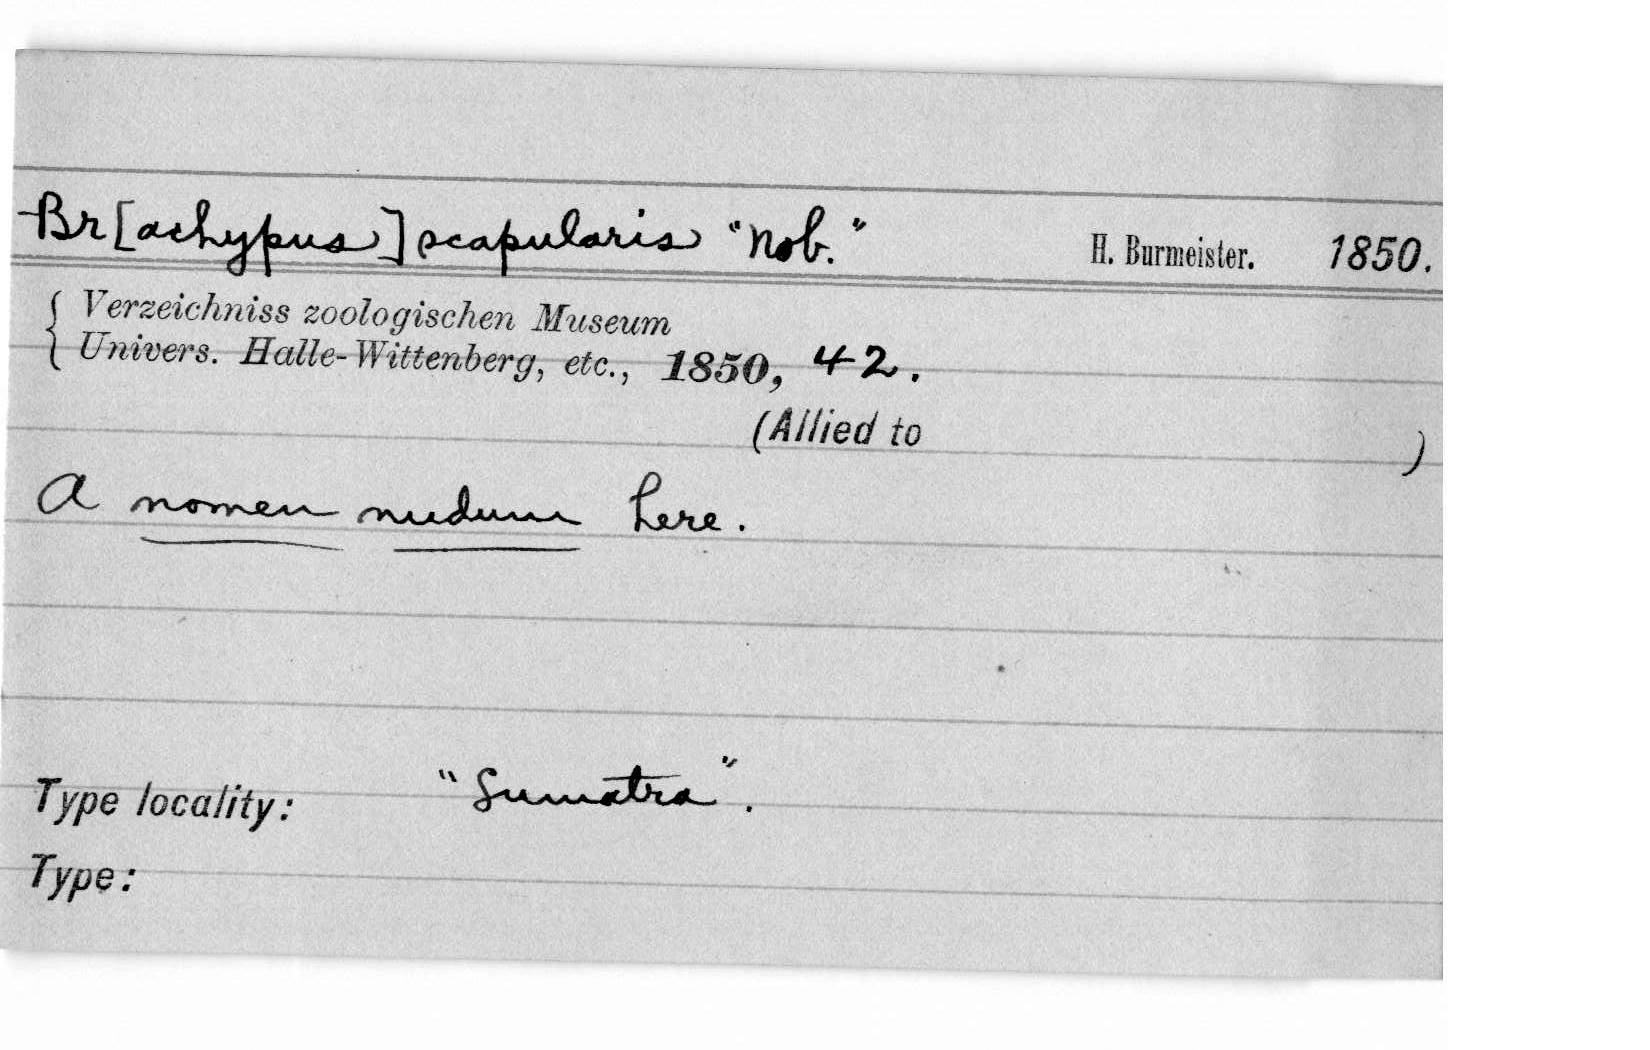 Br[achypus] scapularis "Nob." H. Burmeister. 1850.
{ Verzeichniss zoologischen Museum
Univers. Halle-Wittenberg, etc., 1850, 42.
(Allied to )
A nomen nudum here.
Type locality: "Sumatra".
Type: